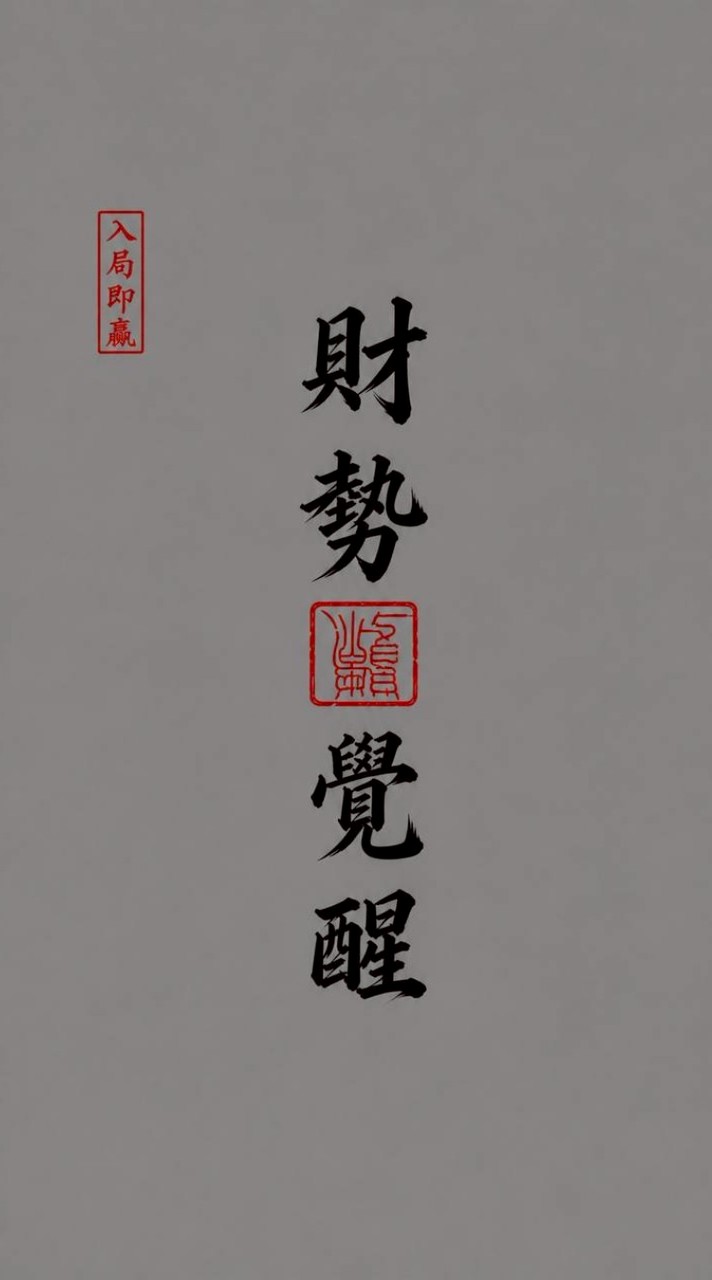 入局即赢
財勢覺醒